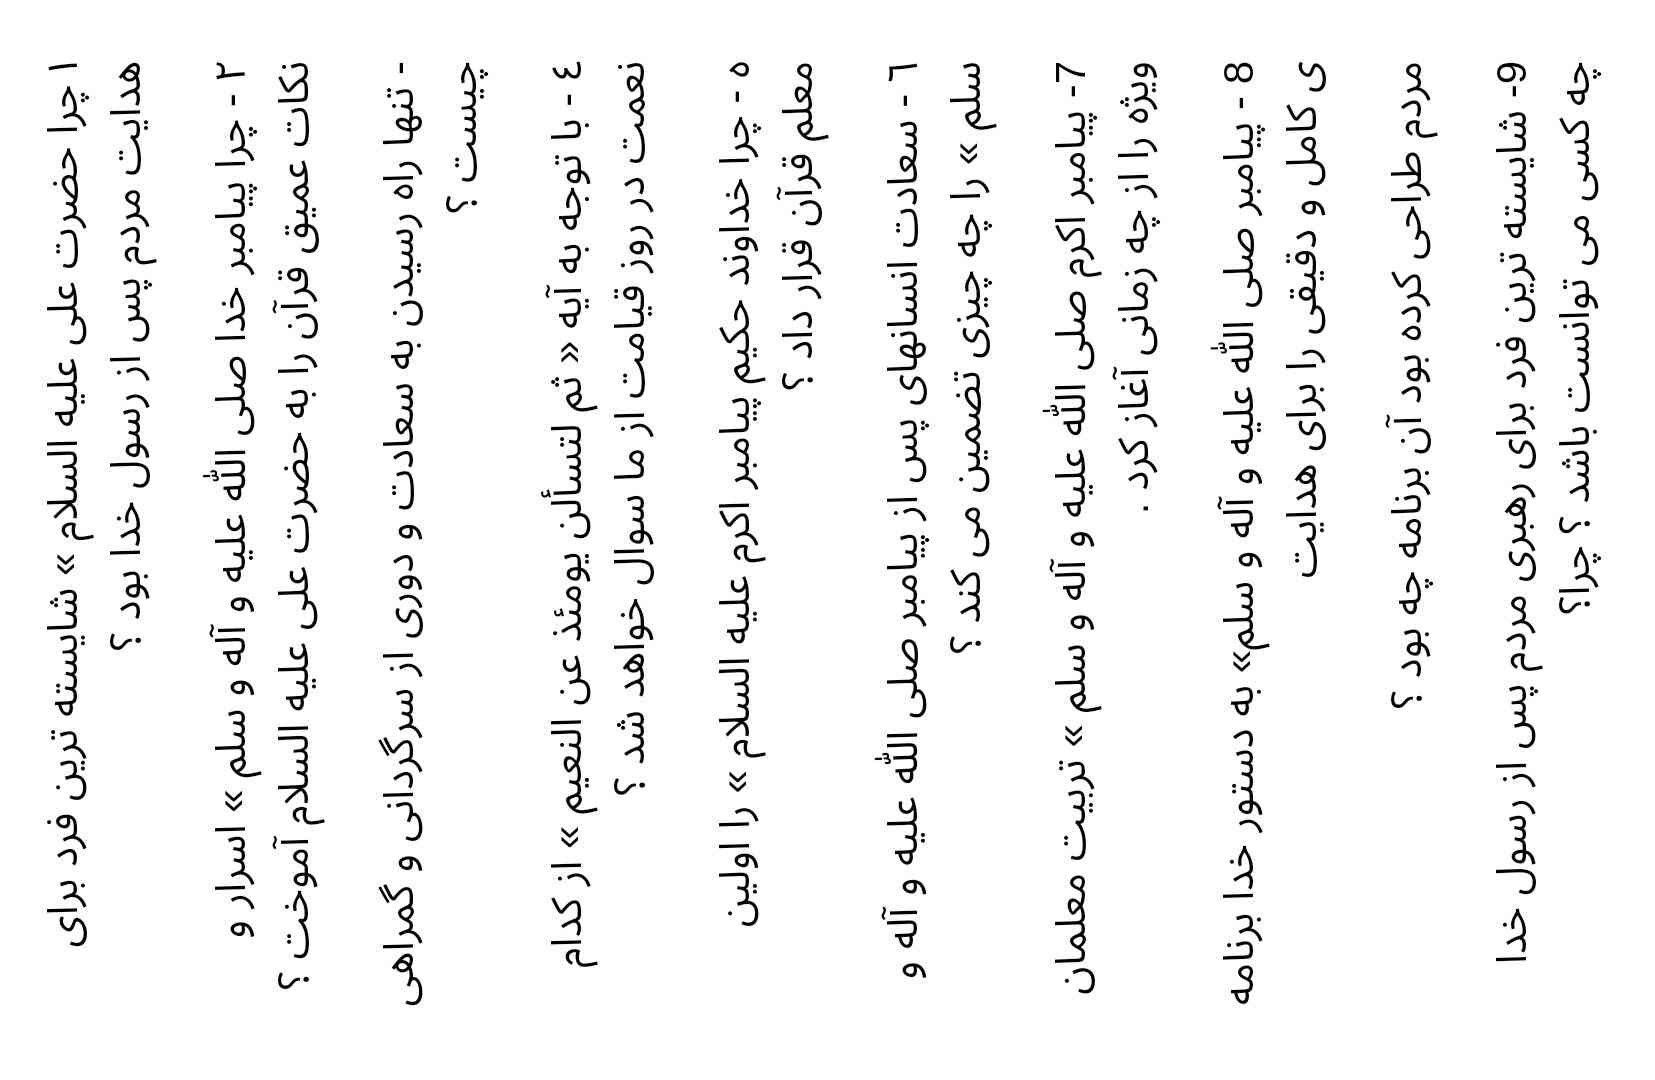 ١ چرا حضرت علی علیه السلام » شایسته ترین فرد برای
هدایت مردم پس از رسول خدا بود ؟
٢ - چرا پیامبر خدا صلی الله علیه و آله و سلم » اسرار و
نکات عمیق قرآن را به حضرت علی علیه السلام آموخت ؟
- تنها راه رسیدن به سعادت و دوری از سرگردانی و گمراهی
چیست ؟
٤ - با توجه به آیه « ثم لتسألن یومئذ عن النعیم » از کدام
نعمت در روز قیامت از ما سوال خواهد شد ؟
٥ - چرا خداوند حکیم پیامبر اکرم علیه السلام » را اولین
معلم قرآن قرار داد ؟
٦ - سعادت انسانهای پس از پیامبر صلی الله علیه و آله و
سلم » را چه چیزی تضمین می کند ؟
7- پیامبر اکرم صلی الله علیه و آله و سلم » تربیت معلمان
ویژه را از چه زمانی آغاز کرد .
8 - پیامبر صلی الله علیه و آله و سلم» به دستور خدا برنامه
ی کامل و دقیقی را برای هدایت
مردم طراحی کرده بود آن برنامه چه بود ؟
9- شایسته ترین فرد برای رهبری مردم پس از رسول خدا
چه کسی می توانست باشد ؟ چرا؟